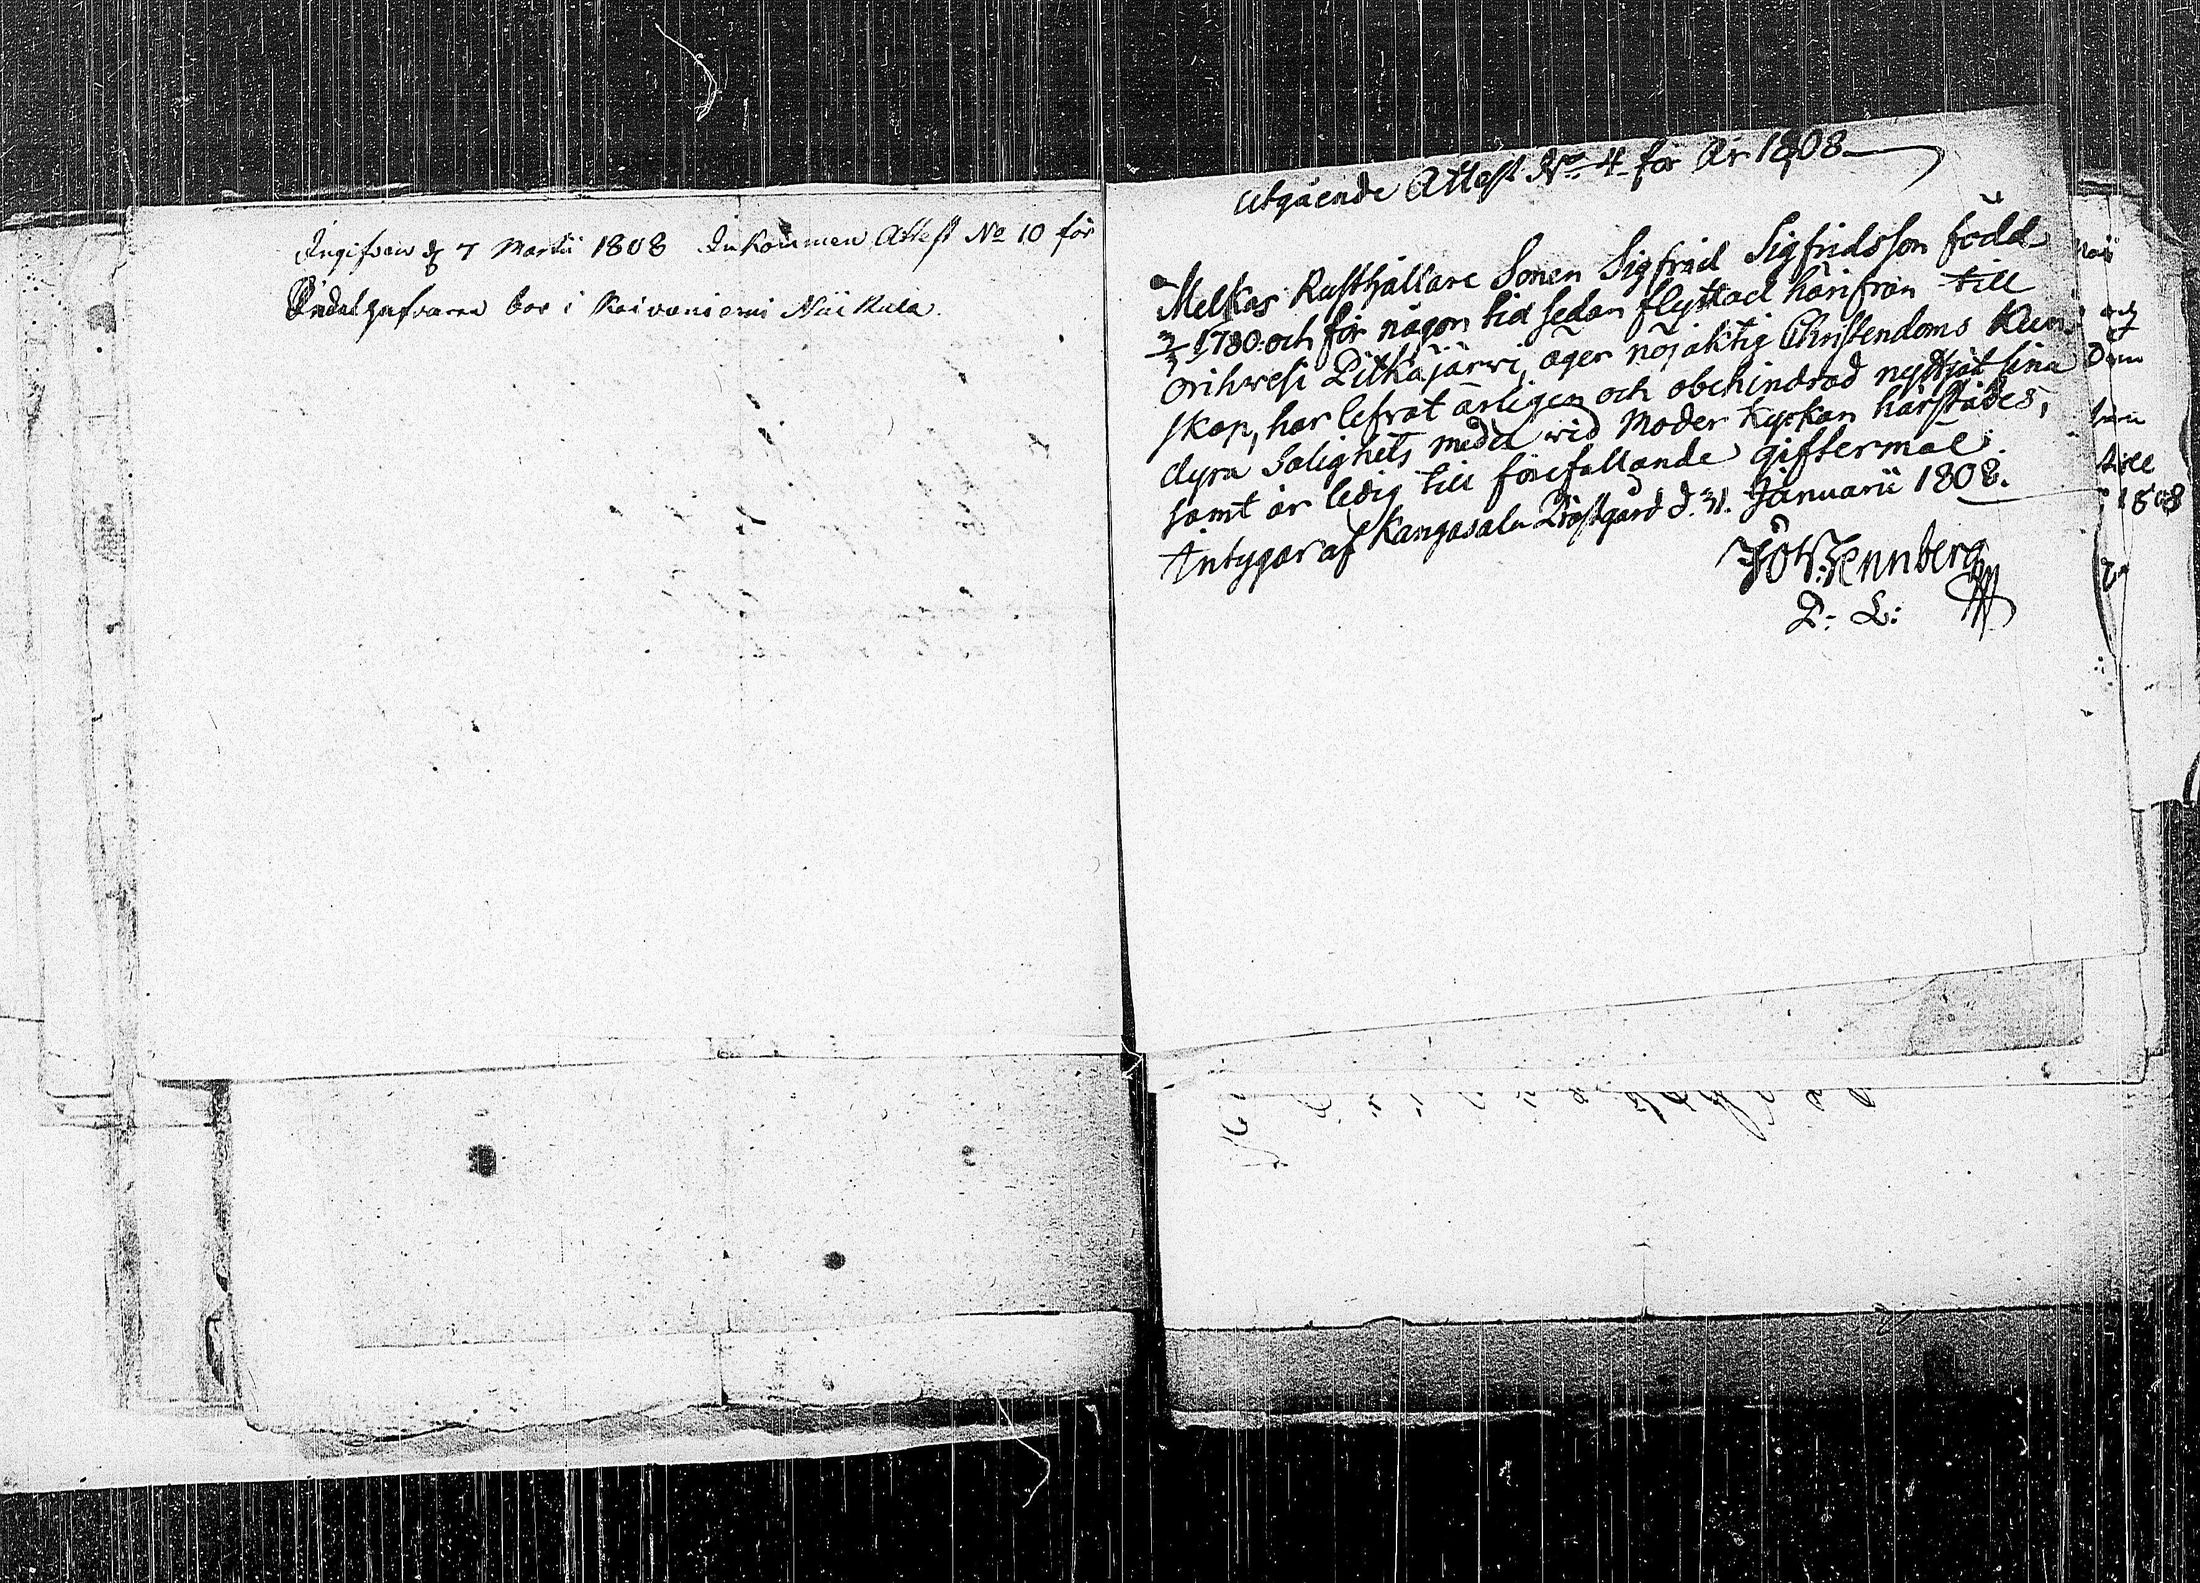 Ingifven d 7 Martii 1808 Inkommen Attest No 10 för
bor i Koivoniemi Niikula.
Utgående Attest No 4 för År 1808
Melkas Rusthållare Sonen Sigfrid Sigfridsson född
3/3 1780. och för någon tid sedan flyttad härifrån till
Orihvesi Pitkäjärwi, äger nöjaktig Christendoms Kun-
skap, har lefvat ärligen och obehindrad nyttjat sina
dyra Salighets medel wid Moder Kyrkan härstädes,
samt är ledig till förefallande giftermål:
Intygar af Kangasala Prästgård d. 31. Januarii 1808.
Joh: Wennberg
P: L:
och
dom
till
1808